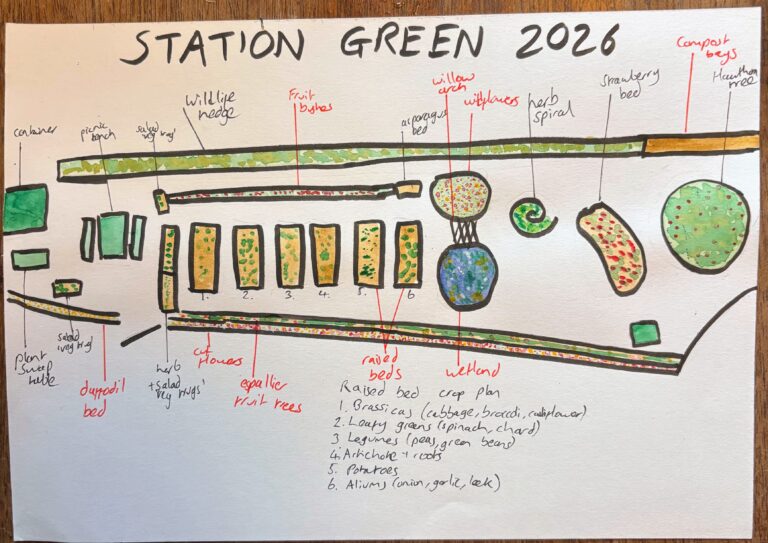 STATION GREEN 2026
compost bays
Hawthorn tree
strawberry bed
willow arch
wildflowers
herb spiral
Fruit bushes
asparagus bed
wildlife hedge
salad 'veg trug'
picnic bench
container
1.
2.
3.
4.
5.
6
plant swap table
salad 'veg trug'
daffodil bed
herb + salad 'veg trugs'
cut flowers
espallier fruit trees
raised beds
wetland
Raised bed crop plan
1. Brassicas (cabbage, broccoli, cauliflower)
2. Leafy greens (spinach, chard)
3. Legumes (peas, green beans)
4. Artichoke + roots
5. Potatoes
6. Aliums (onion, garlic, leek)